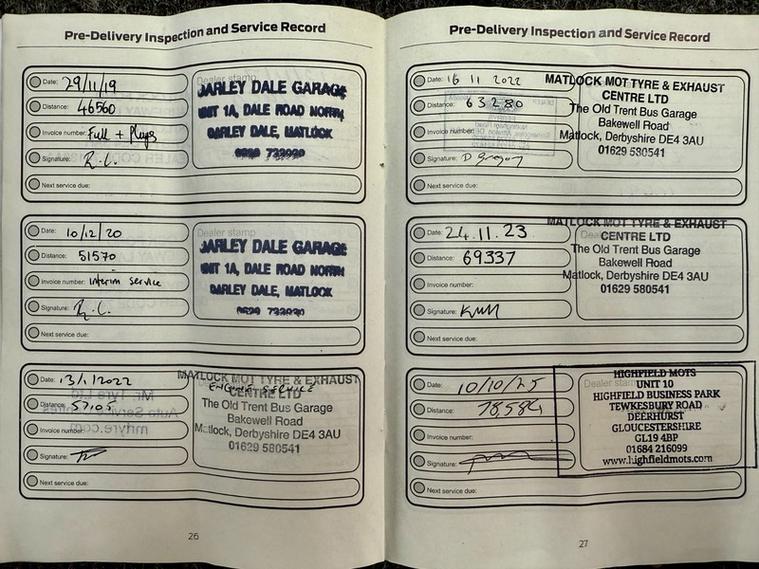 Pre-Delivery Inspection and Service Record
Date: 29/11/19
Distance: 46560
Invoice number: Full + Plugs
Signature: R.C.
Next service due:
Dealer stamp
DARLEY DALE GARAGE
UNIT 1A, DALE ROAD NORTH,
DARLEY DALE, MATLOCK
Date: 10/12/20
Distance: 51570
Invoice number: interim service
Signature: R.C.
Next service due:
Dealer stamp
DARLEY DALE GARAGE
UNIT 1A, DALE ROAD NORTH
DARLEY DALE, MATLOCK
Date: 13/1/2022
Distance: 57105
Invoice number:
Signature:
Next service due:
MATLOCK MOT TYRE & EXHAUST
ENGINE SERVICE
CENTRE LTD
The Old Trent Bus Garage
Bakewell Road
Matlock, Derbyshire DE4 3AU
01629 580541
26
Pre-Delivery Inspection and Service Record
Date: 16 11 2022
Distance: 63280
Invoice number:
Signature:
Next service due:
MATLOCK MOT TYRE & EXHAUST
CENTRE LTD
The Old Trent Bus Garage
Bakewell Road
Matlock, Derbyshire DE4 3AU
01629 580541
Date: 24.11.23
Distance: 69337
Invoice number:
Signature:
Next service due:
MATLOCK MOT TYRE & EXHAUST
CENTRE LTD
The Old Trent Bus Garage
Bakewell Road
Matlock, Derbyshire DE4 3AU
01629 580541
Date: 10/10/25
Distance: 78584
Invoice number:
Signature:
Next service due:
Dealer stamp
HIGHFIELD MOTS
UNIT 10
HIGHFIELD BUSINESS PARK
TEWKESBURY ROAD
DEERHURST
GLOUCESTERSHIRE
GL19 4BP
01684 216099
www.highfieldmots.com
27